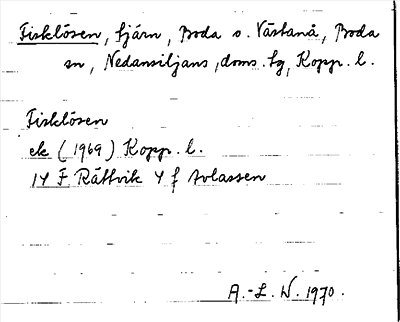 Fisklösen, tjärn, Boda o. Västanå, Boda
sn, Nedansiljans, doms. tg, Kopp. l.
Fisklösen
ek (1969) Kopp. l.
14 F Rättvik 4 f Avlassen
A.-L. W. 1970.